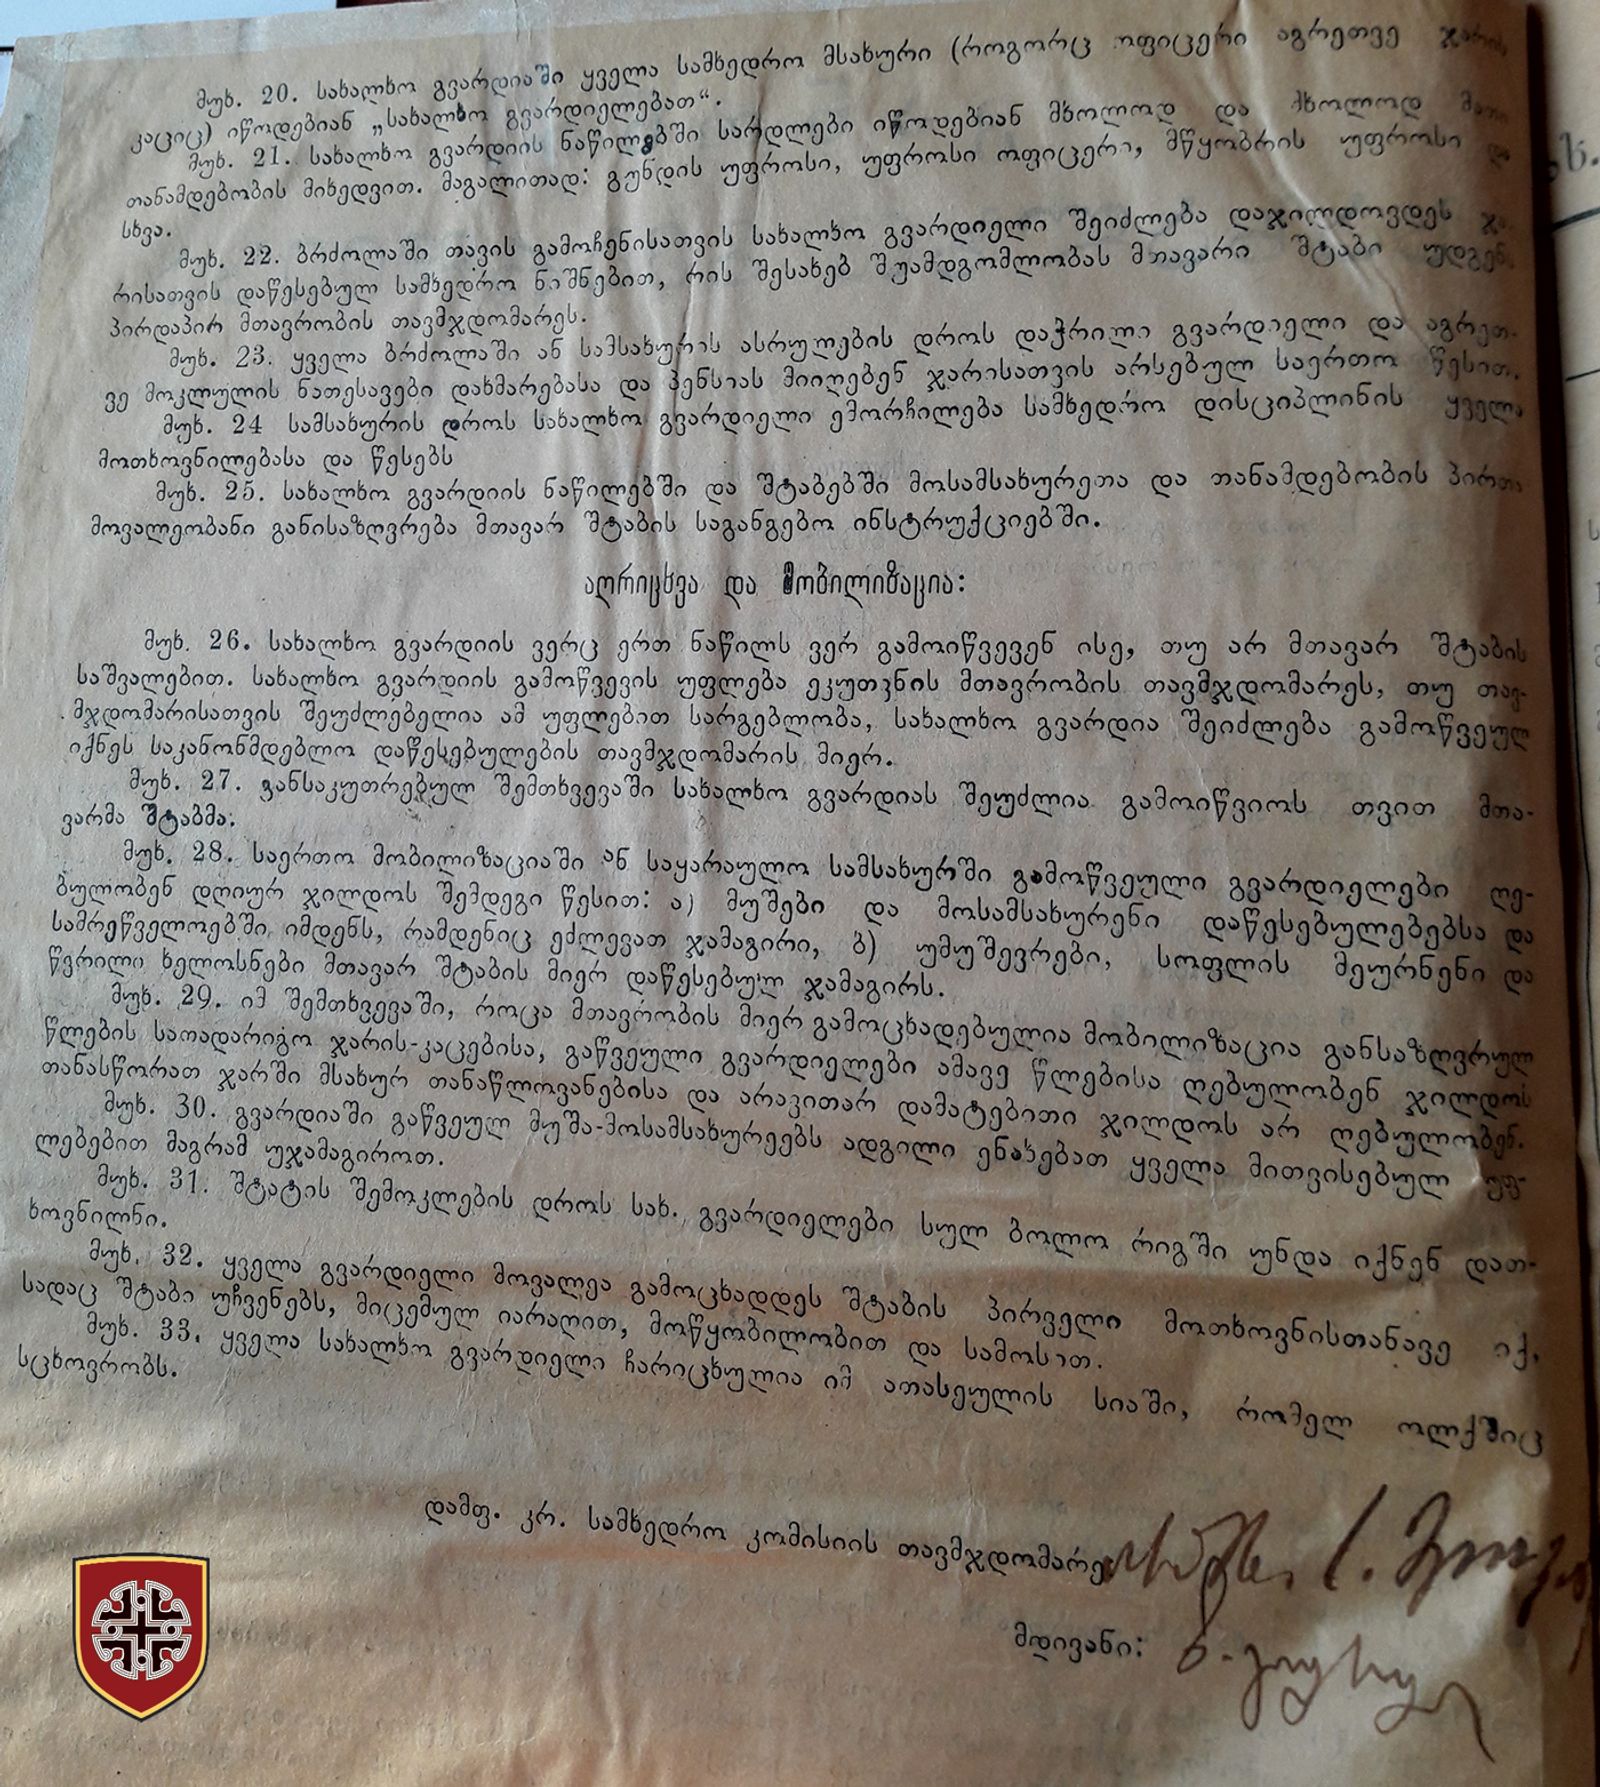 მუხ. 20. სახალხო გვარდიაში ყველა სამხედრო მსახური (როგორც ოფიცერი აგრეთვე ჯარის
კაციც) იწოდებიან „სახალხო გვარდიელებათ“.
მუხ. 21. სახალხო გვარდიის ნაწილებში სარდლები იწოდებიან მხოლოდ და მხოლოდ მათი
თანამდებობის მიხედვით. მაგალითად: გუნდის უფროსი, უფროსი ოფიცერი, მწყობრის უფროსი და
სხვა.
მუხ. 22. ბრძოლაში თავის გამოჩენისათვის სახალხო გვარდიელი შეიძლება დაჯილდოვდეს ჯა-
რისათვის დაწესებულ სამხედრო ნიშნებით, რის შესახებ შუამდგომლობას მთავარი შტაბი უდგენს
პირდაპირ მთავრობის თავმჯდომარეს.
მუხ. 23. ყველა ბრძოლაში ან სამსახურის ასრულების დროს დაჭრილი გვარდიელი და აგრეთ-
ვე მოკლულის ნათესავები დახმარებასა და პენსიას მიიღებენ ჯარისათვის არსებულ საერთო წესით.
მუხ. 24 სამსახურის დროს სახალხო გვარდიელი ემორჩილება სამხედრო დისციპლინის ყველა
მოთხოვნილებასა და წესებს
მუხ. 25. სახალხო გვარდიის ნაწილებში და შტაბებში მოსამსახურეთა და თანამდებობის პირთა
მოვალეობანი განისაზღვრება მთავარ შტაბის საგანგებო ინსტრუქციებში.
აღრიცხვა და მობილიზაცია:
მუხ. 26. სახალხო გვარდიის ვერც ერთ ნაწილს ვერ გამოიწვევენ ისე, თუ არ მთავარ შტაბის
საშვალებით. სახალხო გვარდიის გამოწვევის უფლება ეკუთვნის მთავრობის თავმჯდომარეს, თუ თავ-
მჯდომარისათვის შეუძლებელია ამ უფლებით სარგებლობა, სახალხო გვარდია შეიძლება გამოწვეულ
იქნეს საკანონმდებლო დაწესებულების თავმჯდომარის მიერ.
მუხ. 27. განსაკუთრებულ შემთხვევაში სახალხო გვარდიას შეუძლია გამოიწვიოს თვით მთა-
ვარმა შტაბმა.
მუხ. 28. საერთო მობილიზაციაში ან საყარაულო სამსახურში გამოწვეული გვარდიელები ღე-
ბულობენ დღიურ ჯილდოს შემდეგი წესით: ა) მუშები და მოსამსახურენი დაწესებულებებსა და
სამრეწველოებში იმდენს, რამდენიც ეძლევათ ჯამაგირი, ბ) უმუშევრები, სოფლის მეურნენი და
წვრილი ხელოსნები მთავარ შტაბის მიერ დაწესებულ ჯამაგირს.
მუხ. 29. იმ შემთხვევაში, როცა მთავრობის მიერ გამოცხადებულია მობილიზაცია განსაზღვრულ
წლების სათადარიგო ჯარის-კაცებისა, გაწვეული გვარდიელები ამავე წლებისა ღებულობენ ჯილდოს
თანასწორათ ჯარში მსახურ თანაწლოვანებისა და არავითარ დამატებითი ჯილდოს არ ღებულობენ.
მუხ. 30. გვარდიაში გაწვეულ მუშა-მოსამსახურეებს ადგილი ენახებათ ყველა მითვისებულ უფ-
ლებებით მაგრამ უჯამაგიროთ.
მუხ. 31. შტატის შემოკლების დროს სახ. გვარდიელები სულ ბოლო რიგში უნდა იქნენ დათ-
ხოვნილნი.
მუხ. 32. ყველა გვარდიელი მოვალეა გამოცხადდეს შტაბის პირველი მოთხოვნისთანავე იქ,
სადაც შტაბი უჩვენებს, მიცემულ იარაღით, მოწყობილობით და სამოსით.
მუხ. 33. ყველა სახალხო გვარდიელი ჩარიცხულია იმ ათასეულის სიაში, რომელ ოლქშიც
სცხოვრობს.
დამფ. კრ. სამხედრო კომისიის თავმჯდომარე
მდივანი: